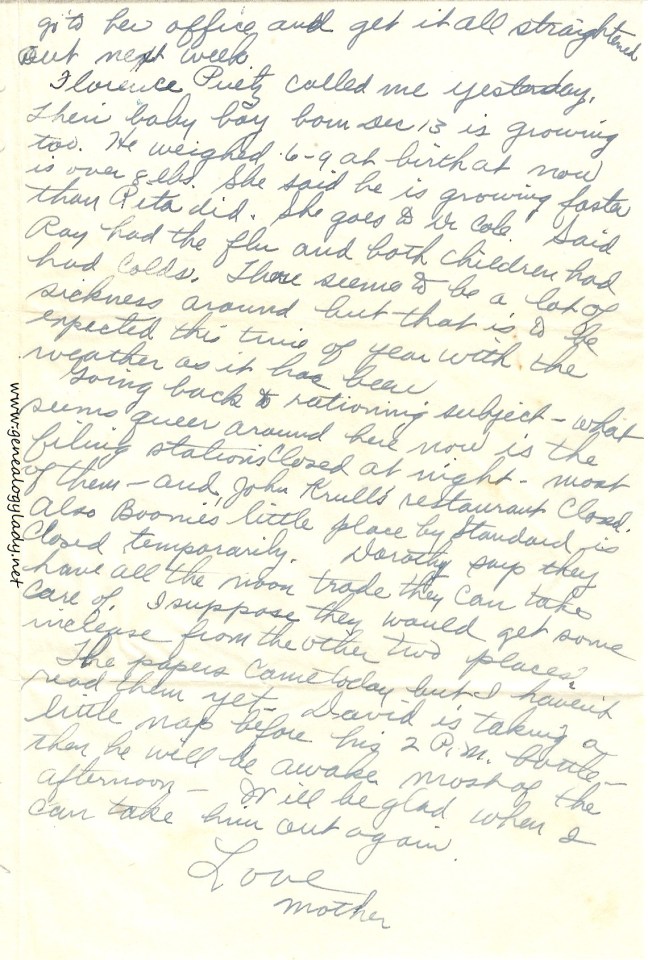 go to her office and get it all straightened
out next week
Florence Puetz called me yesterday.
Their baby boy born Dec 13 is growing
too. He weighed 6-9 at birth at now
is over 8 lbs. She said he is growing faster
than Rita did. She goes to Dr Cole. Said
Ray had the flu and both children had
had colds. There seems to be a lot of
sickness around but that is to be
expected this time of year with the
weather as it has been
Going back to rationing subject - what
seems queer around here now is the
filing stations closed at night - most
of them - and John Krull's restaurant closed.
Also Boonie's little place by Standard is
closed temporarily. Dorothy says they
have all the noon trade they can take
care of. I suppose they would get some
increase from the other two places.
The papers came today but I haven't
read them yet. David is taking a
little nap before his 2 P.M. bottle -
then he will be awake most of the
afternoon - Will be glad when I
can take him out again.
Love
Mother
www.genealogylady.net